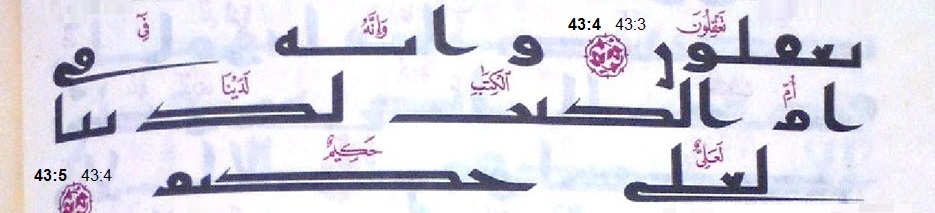 تَعْقِلُونَ 43:3 43:4 وَإِنَّهُ فِي
يعقلون وانه في
أُمِّ الْكِتَٰبِ لَدَيْنَا
ام الكتب لدينا
لَعَلِيٌّ حَكِيمٌ 43:4 43:5
لعلي حكيم